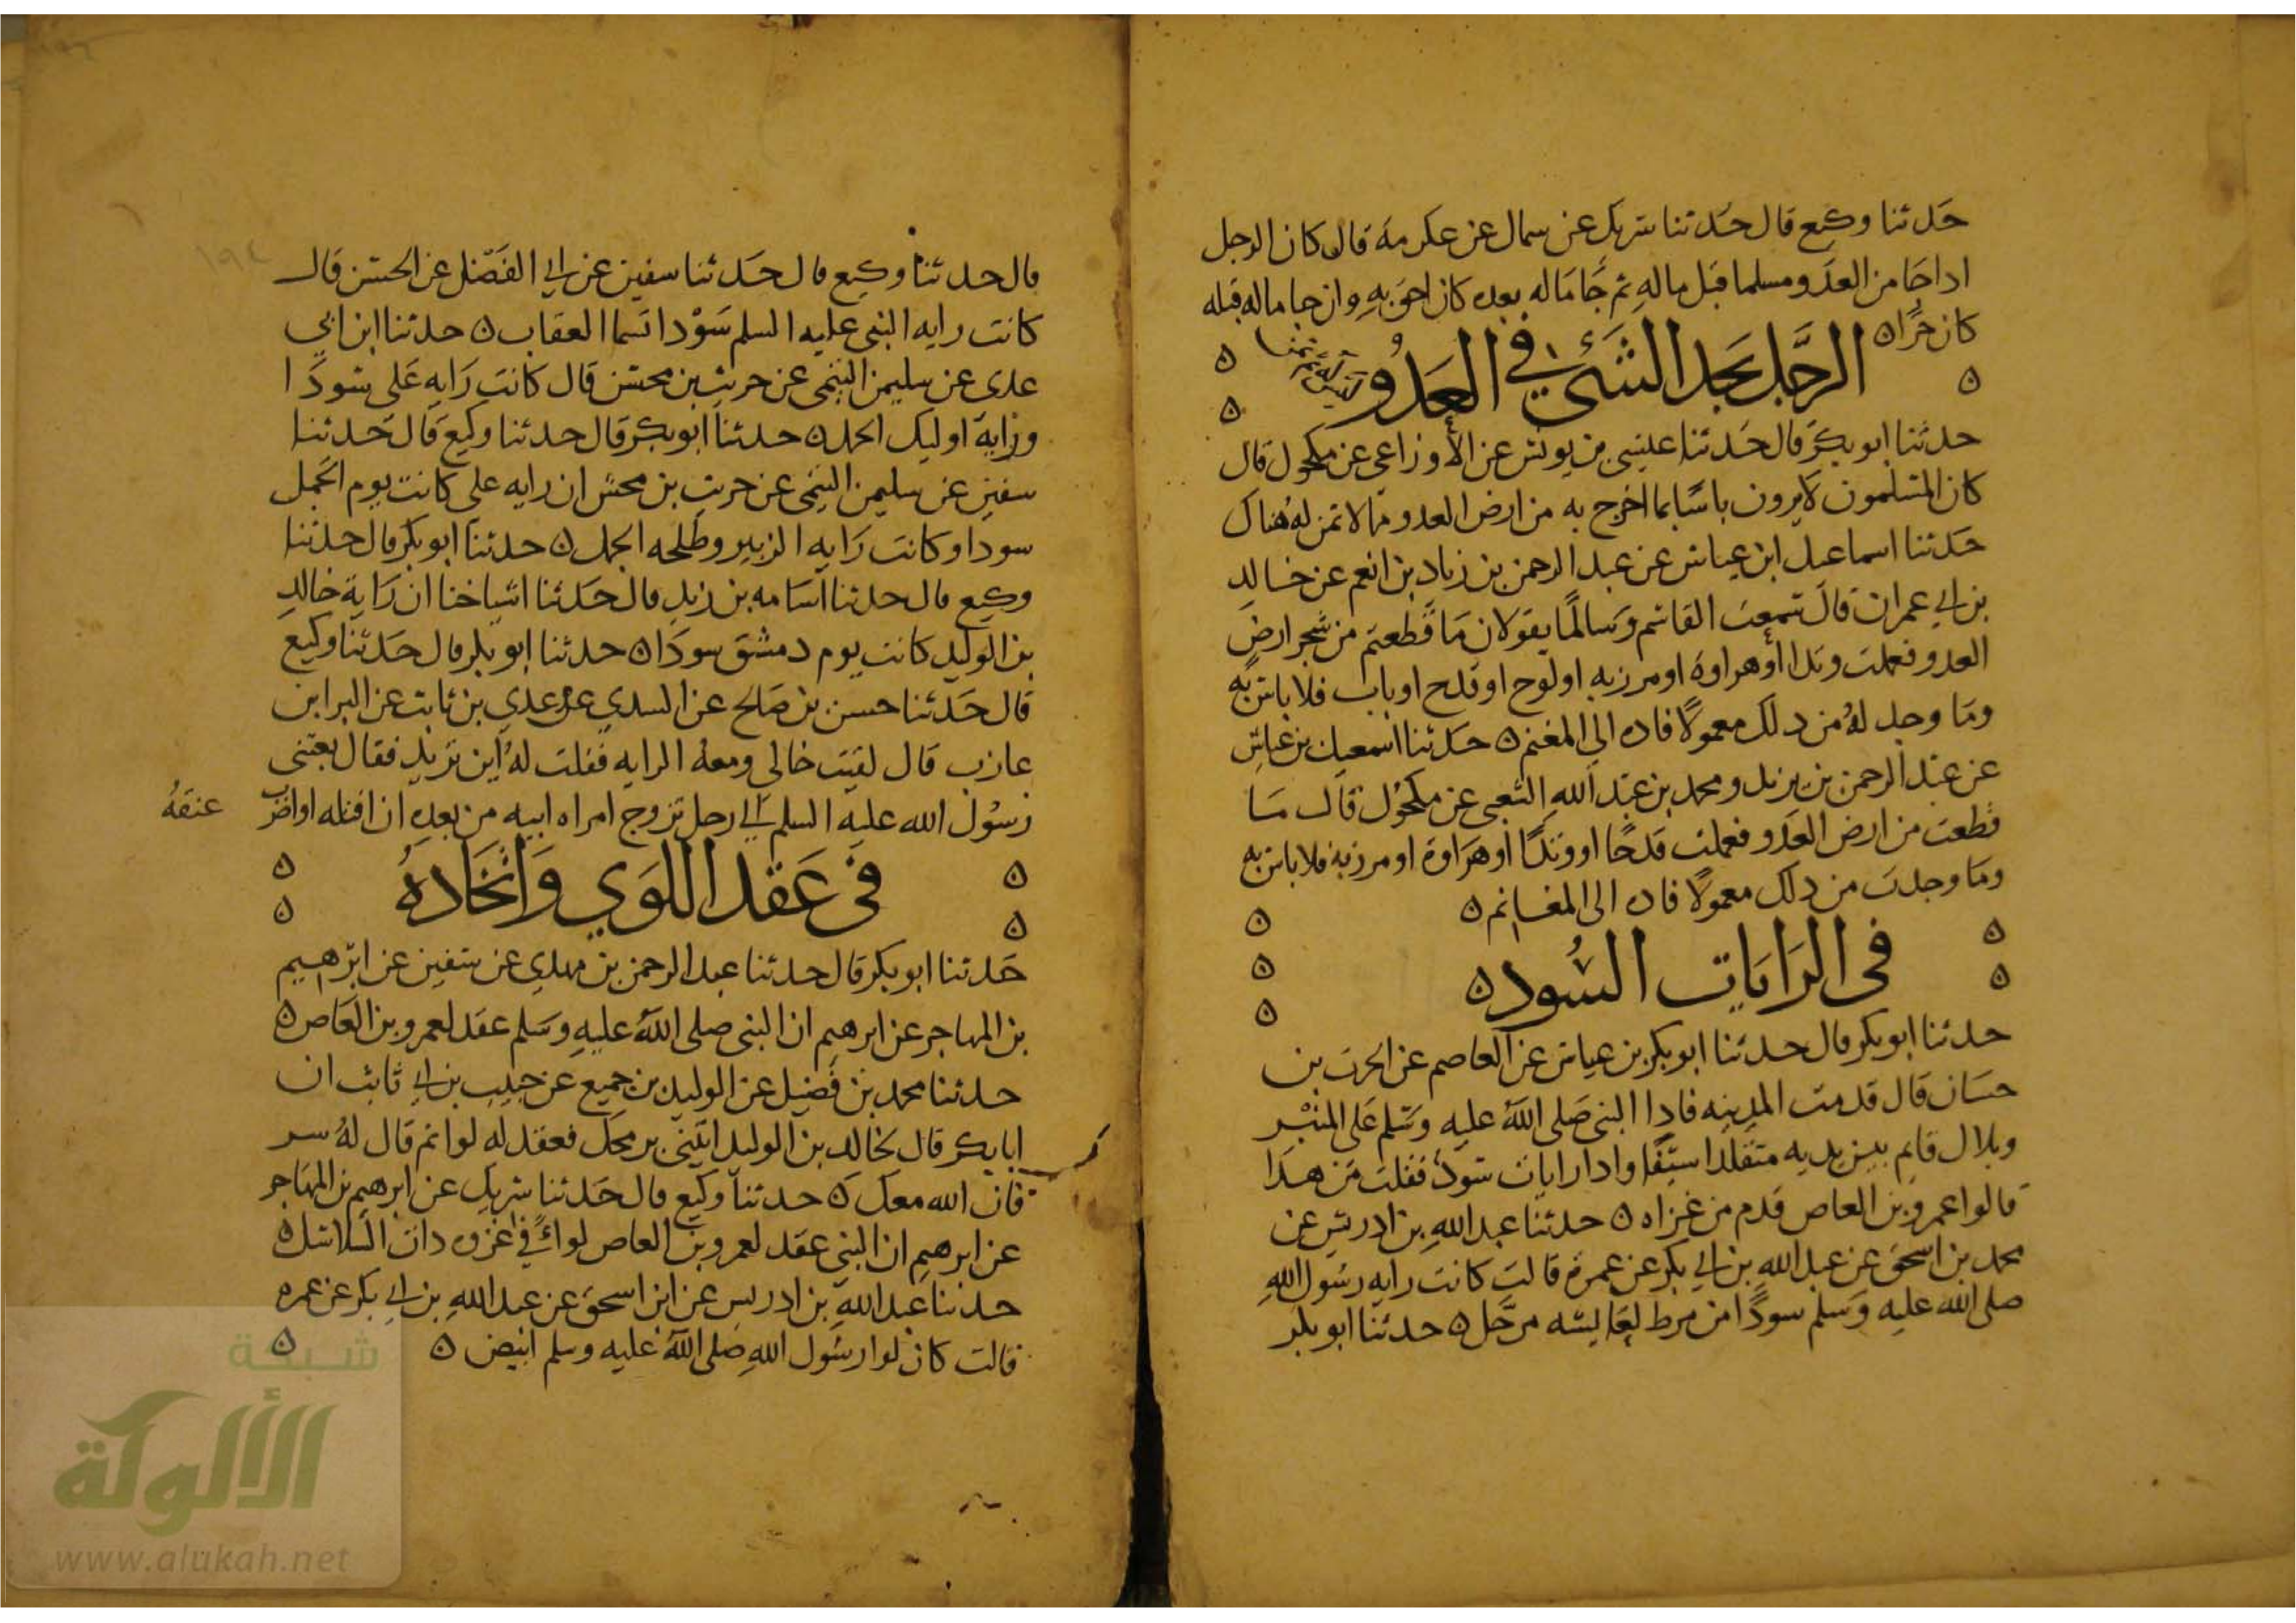 حدثنا وكيع قال حدثنا شريك عن سمال عن عكرمة قال كان الرجل
اداجا من العدو مسلما قبل ماله ثم جا ماله بعده كان احق به وان جا ماله قبله
كان حرا ه
الرجل يجد الشئ في العدو
ليس له ثمن
حدثنا ابو بكر قال حدثنا عيسى بن يونس عن الأوزاعي عن مكحول قال
كان المسلمون لا يرون باسا بما اخرج به من ارض العدو مما لا ثمن له هناك
حدثنا اسماعيل ابن عياش عن عبد الرحمن بن زياد بن انعم عن خالد
بن ابي عمران قال سمعت القاسم وسالما يقولان ما قطعتم من شجر ارض
العدو فعملت وتدا أو هراوة او مرزبه او لوح او قدح او باب فلا باس به
وما وجد له من دلك معمولا فاده الى المغنم ه حدثنا اسمعيل بن عياش
عن عبد الرحمن بن يزيد ومحمد بن عبد الله الشعبي عن مكحول قال ما
قطعت من ارض العدو فعملت قدحا او وتدا او هراوة او مرزبة فلا باس به
وما وجدت من دلك معمولا فاده الى المغانم ه
في الرايات السود ه
حدثنا ابو بكر قال حدثنا ابو بكر بن عياش عن العاصم عن الحرث بن
حسان قال قدمت المدينه فادا النبي صلى الله عليه وسلم على المنبر
وبلال قايم بين يديه متقلدا سيفا وادا رايات سود فقلت من هدا
قالوا عمرو بن العاص قدم من غزاه ه حدثنا عبد الله بن ادريس عن
محمد بن اسحق عن عبد الله بن ابي بكر عن عمرة قالت كانت رايه رسول الله
صلى الله عليه وسلم سودا من مرط لعايشه مرحل ه حدثنا ابو بكر
قال حدثنا وكيع قال حدثنا سفين عن ابي الفضل عن الحسن قال
كانت رايه النبي عليه السلم سودا تسما العقاب ه حدثنا ابن ابي
عدى عن سليمن التيمي عن حريث بن مخش قال كانت راية على سودا
وراية اوليك الجمل ه حدثنا ابو بكر قال حدثنا وكيع قال حدثنا
سفين عن سليمن التيمي عن حريث بن مخش ان رايه على كانت يوم الجمل
سودا وكانت رايه الزبير وطلحه الجمل ه حدثنا ابو بكر قال حدثنا
وكيع قال حدثنا اسامه بن زيد قال حدثنا اشياخنا ان راية خالد
بن الوليد كانت يوم دمشق سودا ه حدثنا ابو بكر قال حدثنا وكيع
قال حدثنا حسن بن صالح عن السدي عن عدي بن ثابت عن البرا بن
عازب قال لقيت خالي ومعه الرايه فقلت له اين تريد فقال بعثنى
رسول الله عليه السلم الي رجل تزوج امراه ابيه من بعده ان اقتله او اضرب عنقه
في عقد اللوي واتخاده
حدثنا ابو بكر قال حدثنا عبد الرحمن بن مهدي عن سفين عن ابرهيم
بن المهاجر عن ابرهيم ان النبي صلى الله عليه وسلم عقد لعمرو بن العاص ه
حدثنا محمد بن فضيل عن الوليد بن جميع عن حبيب بن ابي ثابت ان
ابا بكر قال لخالد بن الوليد ايتني برمحك فعقد له لوا ثم قال له سر
فان الله معك ه حدثنا وكيع قال حدثنا شريك عن ابرهيم بن المهاجر
عن ابرهيم ان النبي عقد لعمرو بن العاص لواءً في غزوه دات السلاسل ه
حدثنا عبد الله بن ادريس عن ابن اسحق عن عبد الله بن ابي بكر عن عمره
قالت كان لوا رسول الله صلى الله عليه وسلم ابيض ه
شبكة
الألوكة
www.alukah.net